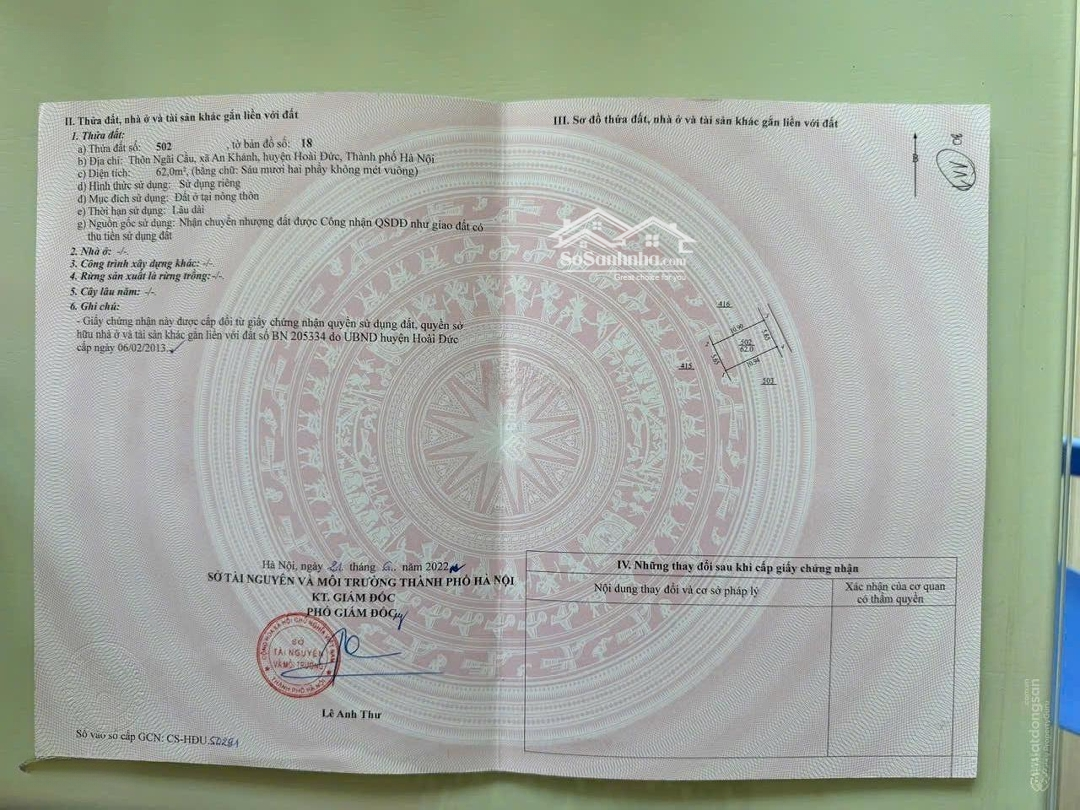 II. Thửa đất, nhà ở và tài sản khác gắn liền với đất
1. Thửa đất:
a) Thửa đất số: 502 , tờ bản đồ số: 18
b) Địa chỉ: Thôn Ngãi Cầu, xã An Khánh, huyện Hoài Đức, Thành phố Hà Nội
c) Diện tích: 62,0m², (bằng chữ: Sáu mươi hai phẩy không mét vuông)
d) Hình thức sử dụng: Sử dụng riêng
đ) Mục đích sử dụng: Đất ở tại nông thôn
e) Thời hạn sử dụng: Lâu dài
g) Nguồn gốc sử dụng: Nhận chuyển nhượng đất được Công nhận QSDĐ như giao đất có
thu tiền sử dụng đất
2. Nhà ở: -/-
3. Công trình xây dựng khác: -/-
4. Rừng sản xuất là rừng trồng: -/-
5. Cây lâu năm: -/-
6. Ghi chú:
- Giấy chứng nhận này được cấp đổi từ giấy chứng nhận quyền sử dụng đất, quyền sở
hữu nhà ở và tài sản khác gắn liền với đất số BN 205334 do UBND huyện Hoài Đức
cấp ngày 06/02/2013.
Hà Nội, ngày 21 tháng 6. năm 2022
SỞ TÀI NGUYÊN VÀ MÔI TRƯỜNG THÀNH PHỐ HÀ NỘI
KT. GIÁM ĐỐC
PHÓ GIÁM ĐỐC
CỘNG HÒA XÃ HỘI CHỦ NGHĨA VIỆT NAM
SỞ
TÀI NGUYÊN
VÀ MÔI TRƯỜNG
THÀNH PHỐ HÀ NỘI
Lê Anh Thư
Số vào sổ cấp GCN: CS-HĐU.50291
III. Sơ đồ thửa đất, nhà ở và tài sản khác gắn liền với đất
B
SoSanhnha.com
Great choice for you
416
10.90
5.65
502
62.0
5.65
10.94
415
503
IV. Những thay đổi sau khi cấp giấy chứng nhận
Nội dung thay đổi và cơ sở pháp lý
Xác nhận của cơ quan
có thẩm quyền